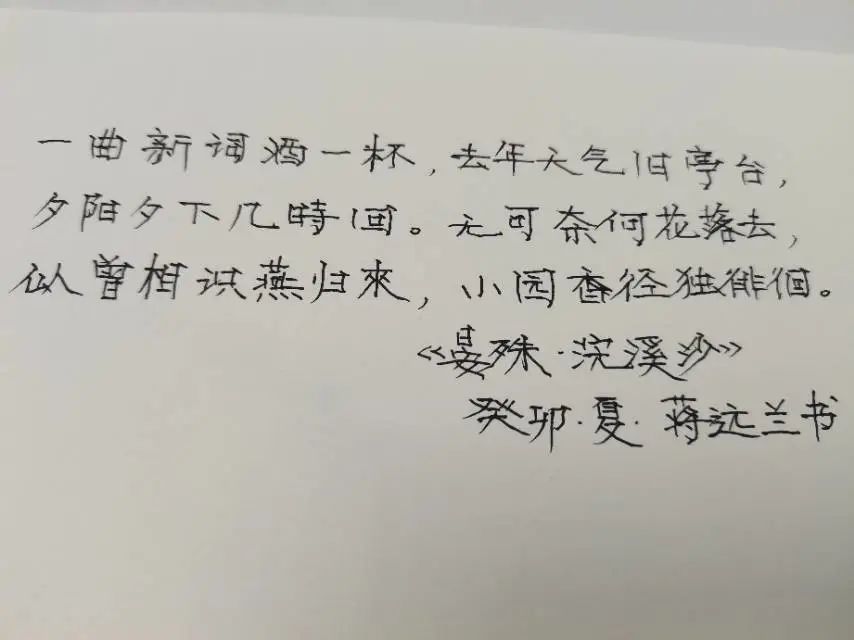 一曲新词酒一杯,去年天气旧亭台,
夕阳夕下几時回。无可奈何花落去,
似曾相识燕归來,小园香径独徘徊。
《晏殊·浣溪沙》
癸卯·夏·蒋远兰书